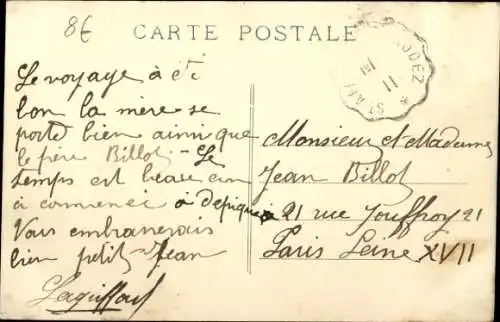 8€
CARTE POSTALE
RODEZ
11
Le voyage à été
bon la mère se
porte bien ainsi que
le père Billot - Le
temps est beau on
a commencé à dépiquer
Vous embrasserais
bien petit Jean
Monsieur et Madame
Jean Billot
21 rue Jouffroy 21
Paris Seine XVII